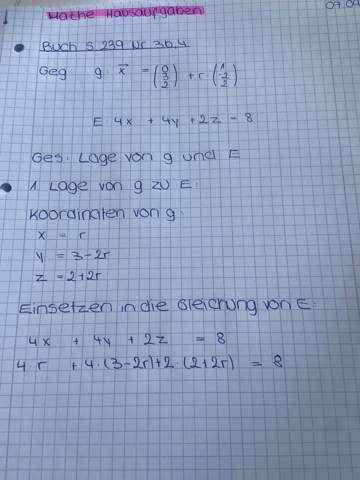 Mathe Hausaufgaben
07.09
Buch S. 239 Nr 3b,4
Geg g: x⃗ = (0 3 2) + r (1 -2 2)
E 4x + 4y + 2z = 8
Ges: Lage von g und E
1. Lage von g zu E:
Koordinaten von g:
x = r
y = 3-2r
z = 2+2r
Einsetzen in die Gleichung von E:
4x + 4y + 2z = 8
4·r + 4·(3-2r)+2·(2+2r) = 8